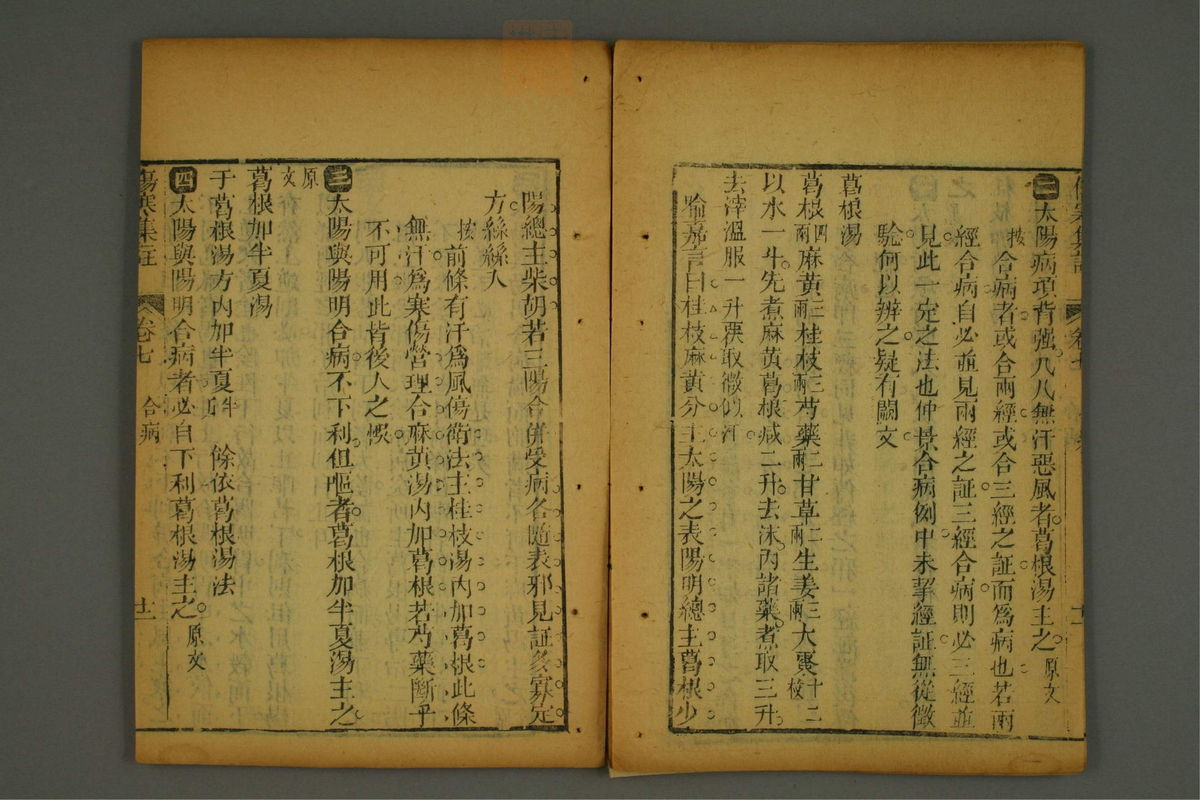 二 太陽病項背強几几無汗惡風者葛根湯主之 原文
按合病者或合兩經或合三經之証而爲病也若兩
經合病自必並見兩經之証三經合病則必三經並
見此一定之法也仲景合病例中未挈經証無從徵
驗何以辨之疑有闕文
葛根湯
葛根四兩麻黃三兩桂枝二兩芍藥二兩甘草二兩生姜三兩大棗十二枚
以水一斗先煮麻黄葛根減二升去沫內諸藥煮取三升
去滓溫服一升覆取微似汗
喻嘉言曰桂枝麻黃分主太陽之表陽明總主葛根少
陽總主柴胡若三陽合併受病各隨表邪見証多寡定
方絲絲入
按前條有汗爲風傷衛法主桂枝湯內加葛根此條
無汗爲寒傷營理合麻黃湯內加葛根若芍藥斷乎
不可用此皆後人之悞
三 太陽與陽明合病不下利但嘔者葛根加半夏湯主之
原文
葛根加半夏湯
于葛根湯方內加半夏半升 餘依葛根湯法
四 太陽與陽明合病者必自下利葛根湯主之 原文
傷寒集註 卷七 合病 十一